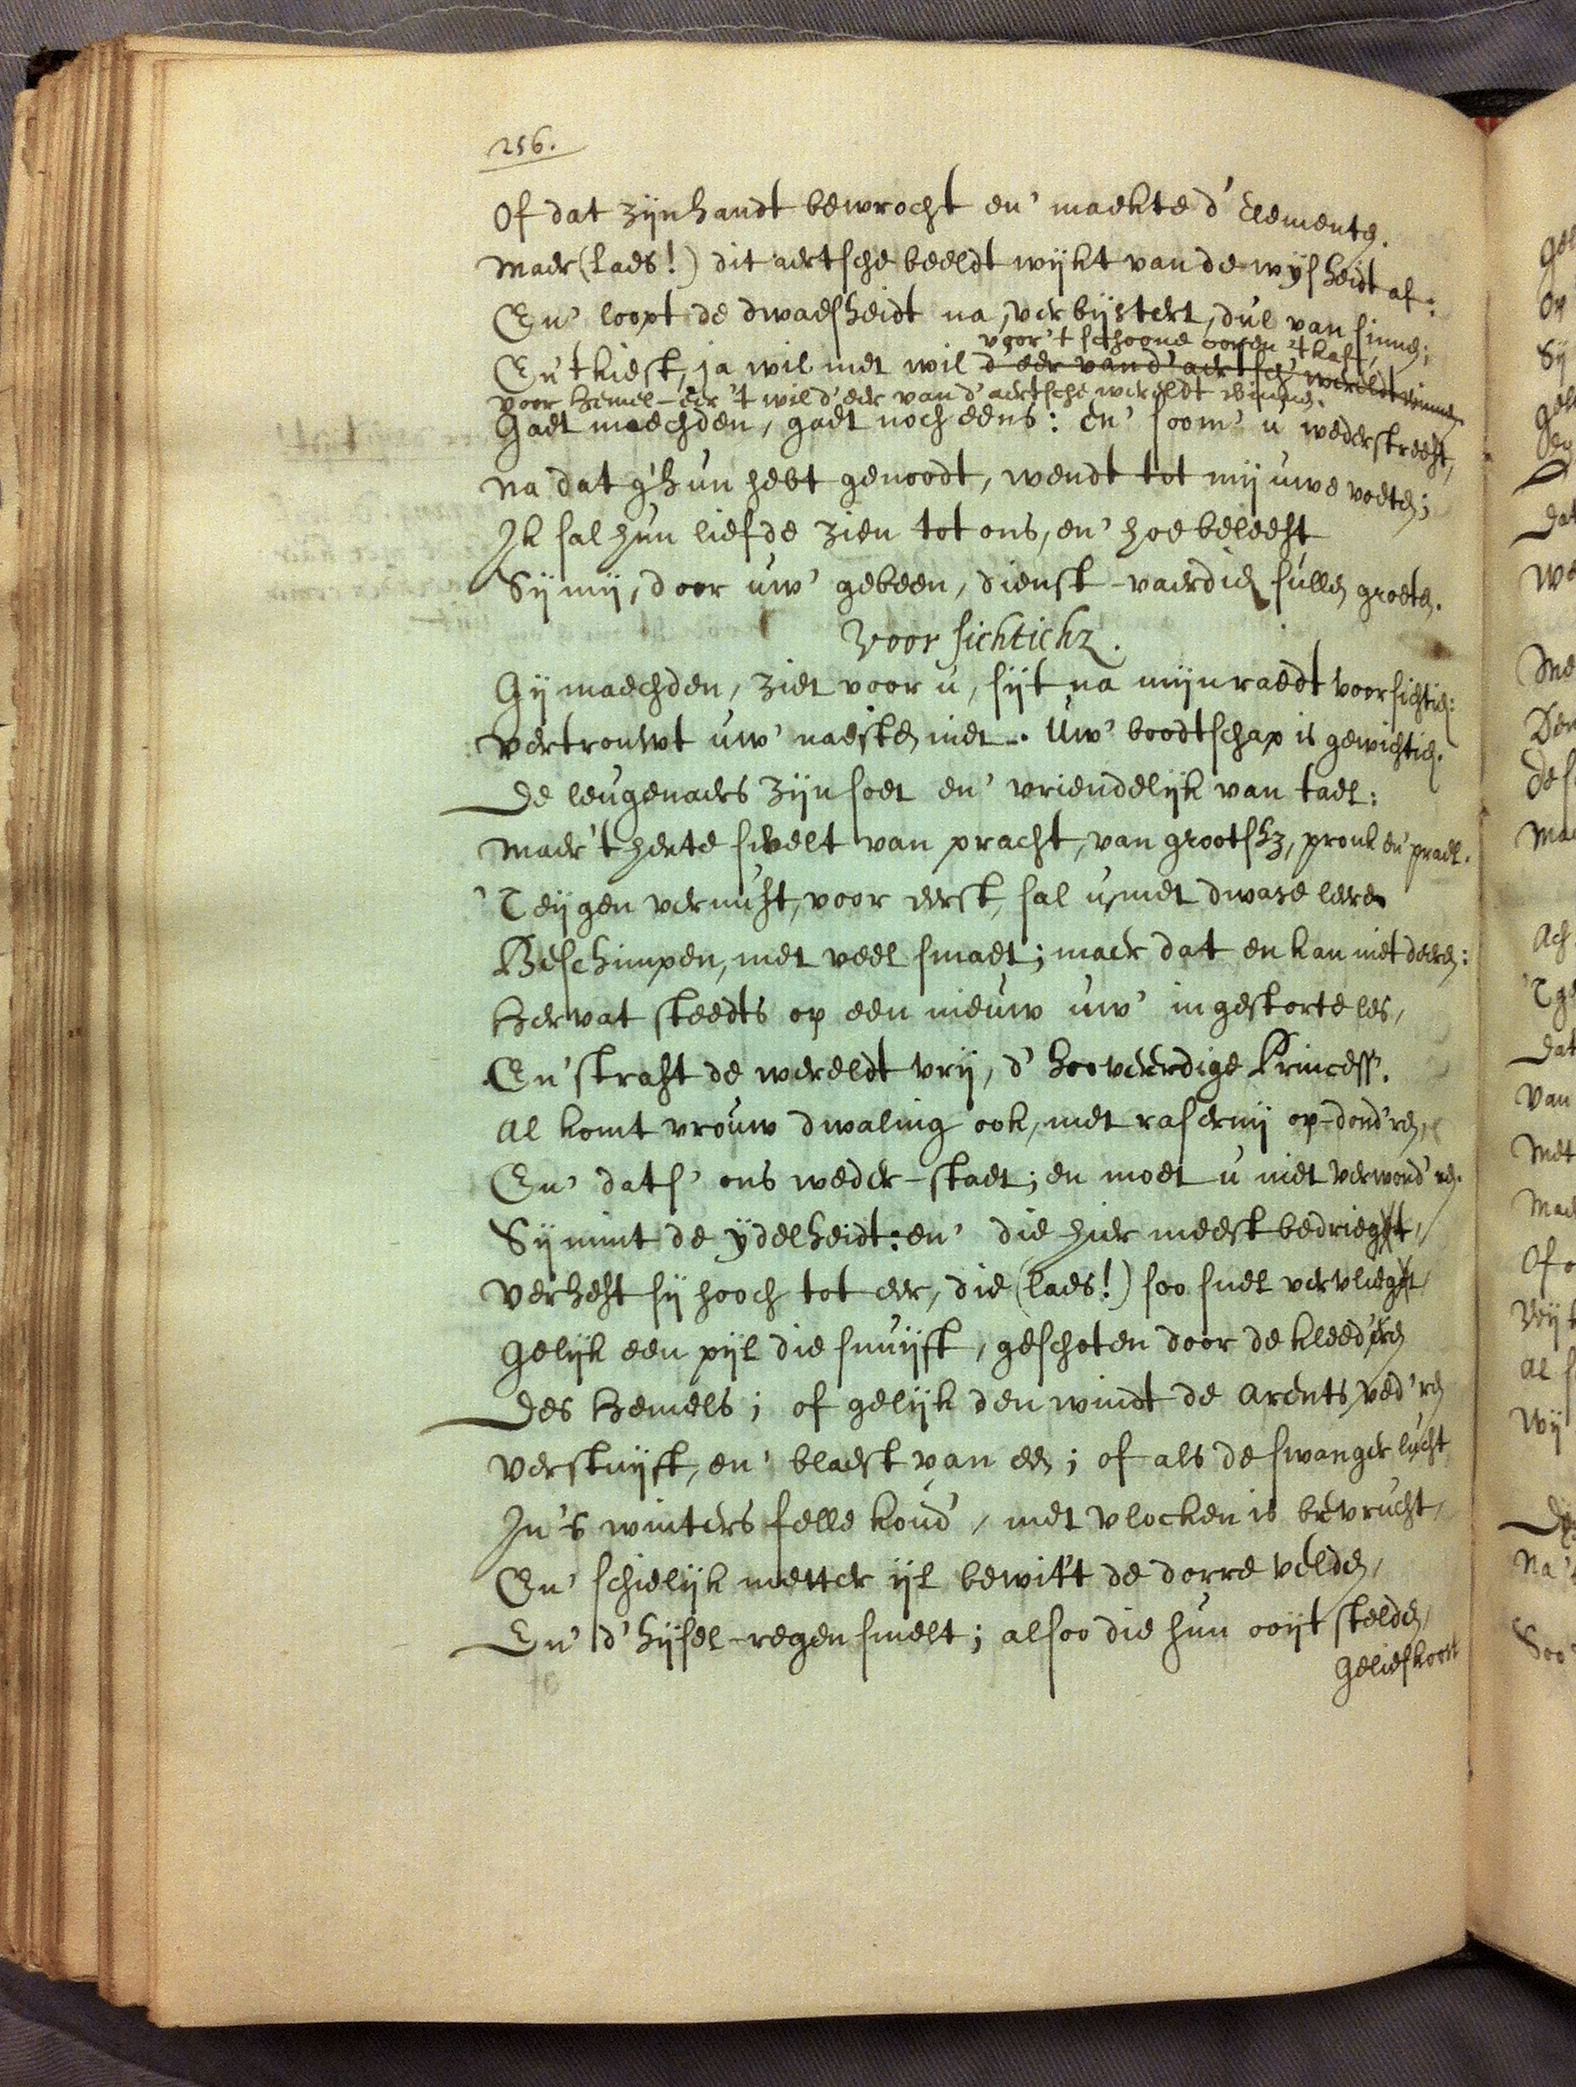 256.
Of dat zijn handt bewrocht en' maekte d' Elementen.
Maer (laes!) dit aertsche beeldt wijkt van de wysheidt af:
En' loopt de dwaesheidt na, verbijstert, dul van sinne;
voor 't schoone ooren 't kaf,
En 't kiest, ja wil met wil d'eer van d' aertsch' wereldt winne
voor hemel-eer 't wil d'eer van d' aertsche wereldt winne.
Gaet maechden, gaet noch eens: en' soom' u wederstreeft,
Na dat g'hun hebt genoodt, wendt tot mij uwe voeten;
Ik sal hun liefde zien tot ons, en' hoe beleeft
Sij mij, door uw' gebeen, dienst-vaerdich sullen groeten.
Voorsichtichz.
Gij maechden, ziet voor u, sijt na mijn raedt voorsichtich:
Vertrouwt uw' naesten niet. Uw' boodtschap is gewichtich.
De leugenaers zijn soet en' vriendelijk van tael:
Maer 't herte swelt van pracht, van grootshz, pronk en' prael.
'T eijgen vernuft, voor eerst, sal u, met dwase leren
Beschimpen, met veel smaet; maer dat en kan niet deren:
Hervat steedts op een nieuw uw' ingestorte les,
En' straft de wereldt vrij, d' hooveerdige Princess'.
Al komt vrouw dwaling ook, met rasernij op-dond'ren,
En' dats' ons weder-staet; en moet u niet verwond'ren.
Sij mint de ijdelheidt: en' die hier meest bedriegt,
Verheft sij hooch tot eer, die (laes!) soo snel vervliegt,
Gelijk een pijl die snuijft, geschoten door de kleed'ren
Des hemels; of gelijk den windt de Arents ved'ren
Verstuijft, en' blaest van een; of als de swanger lucht
In 's winters felle koud', met vlocken is bevrucht,
En' schielijk metter ijl bewit't de dorre velden,
En' d' hijsel-regen smelt; alsoo die hun ooijt stelden,
Geliefkoost